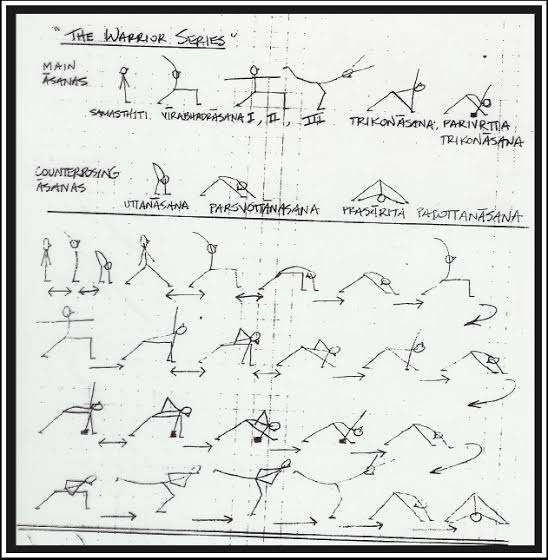 "THE WARRIOR SERIES"
MAIN
ĀSANAS
SAMASTHITI VĪRABHADRĀSANA I, II, III TRIKONĀSANA, PARIVRTTA
TRIKONĀSANA
COUNTERPOSING
ĀSANAS
UTTANĀSANA PARSVOTTANĀSANA PRASĀRITA PADOTTANĀSANA